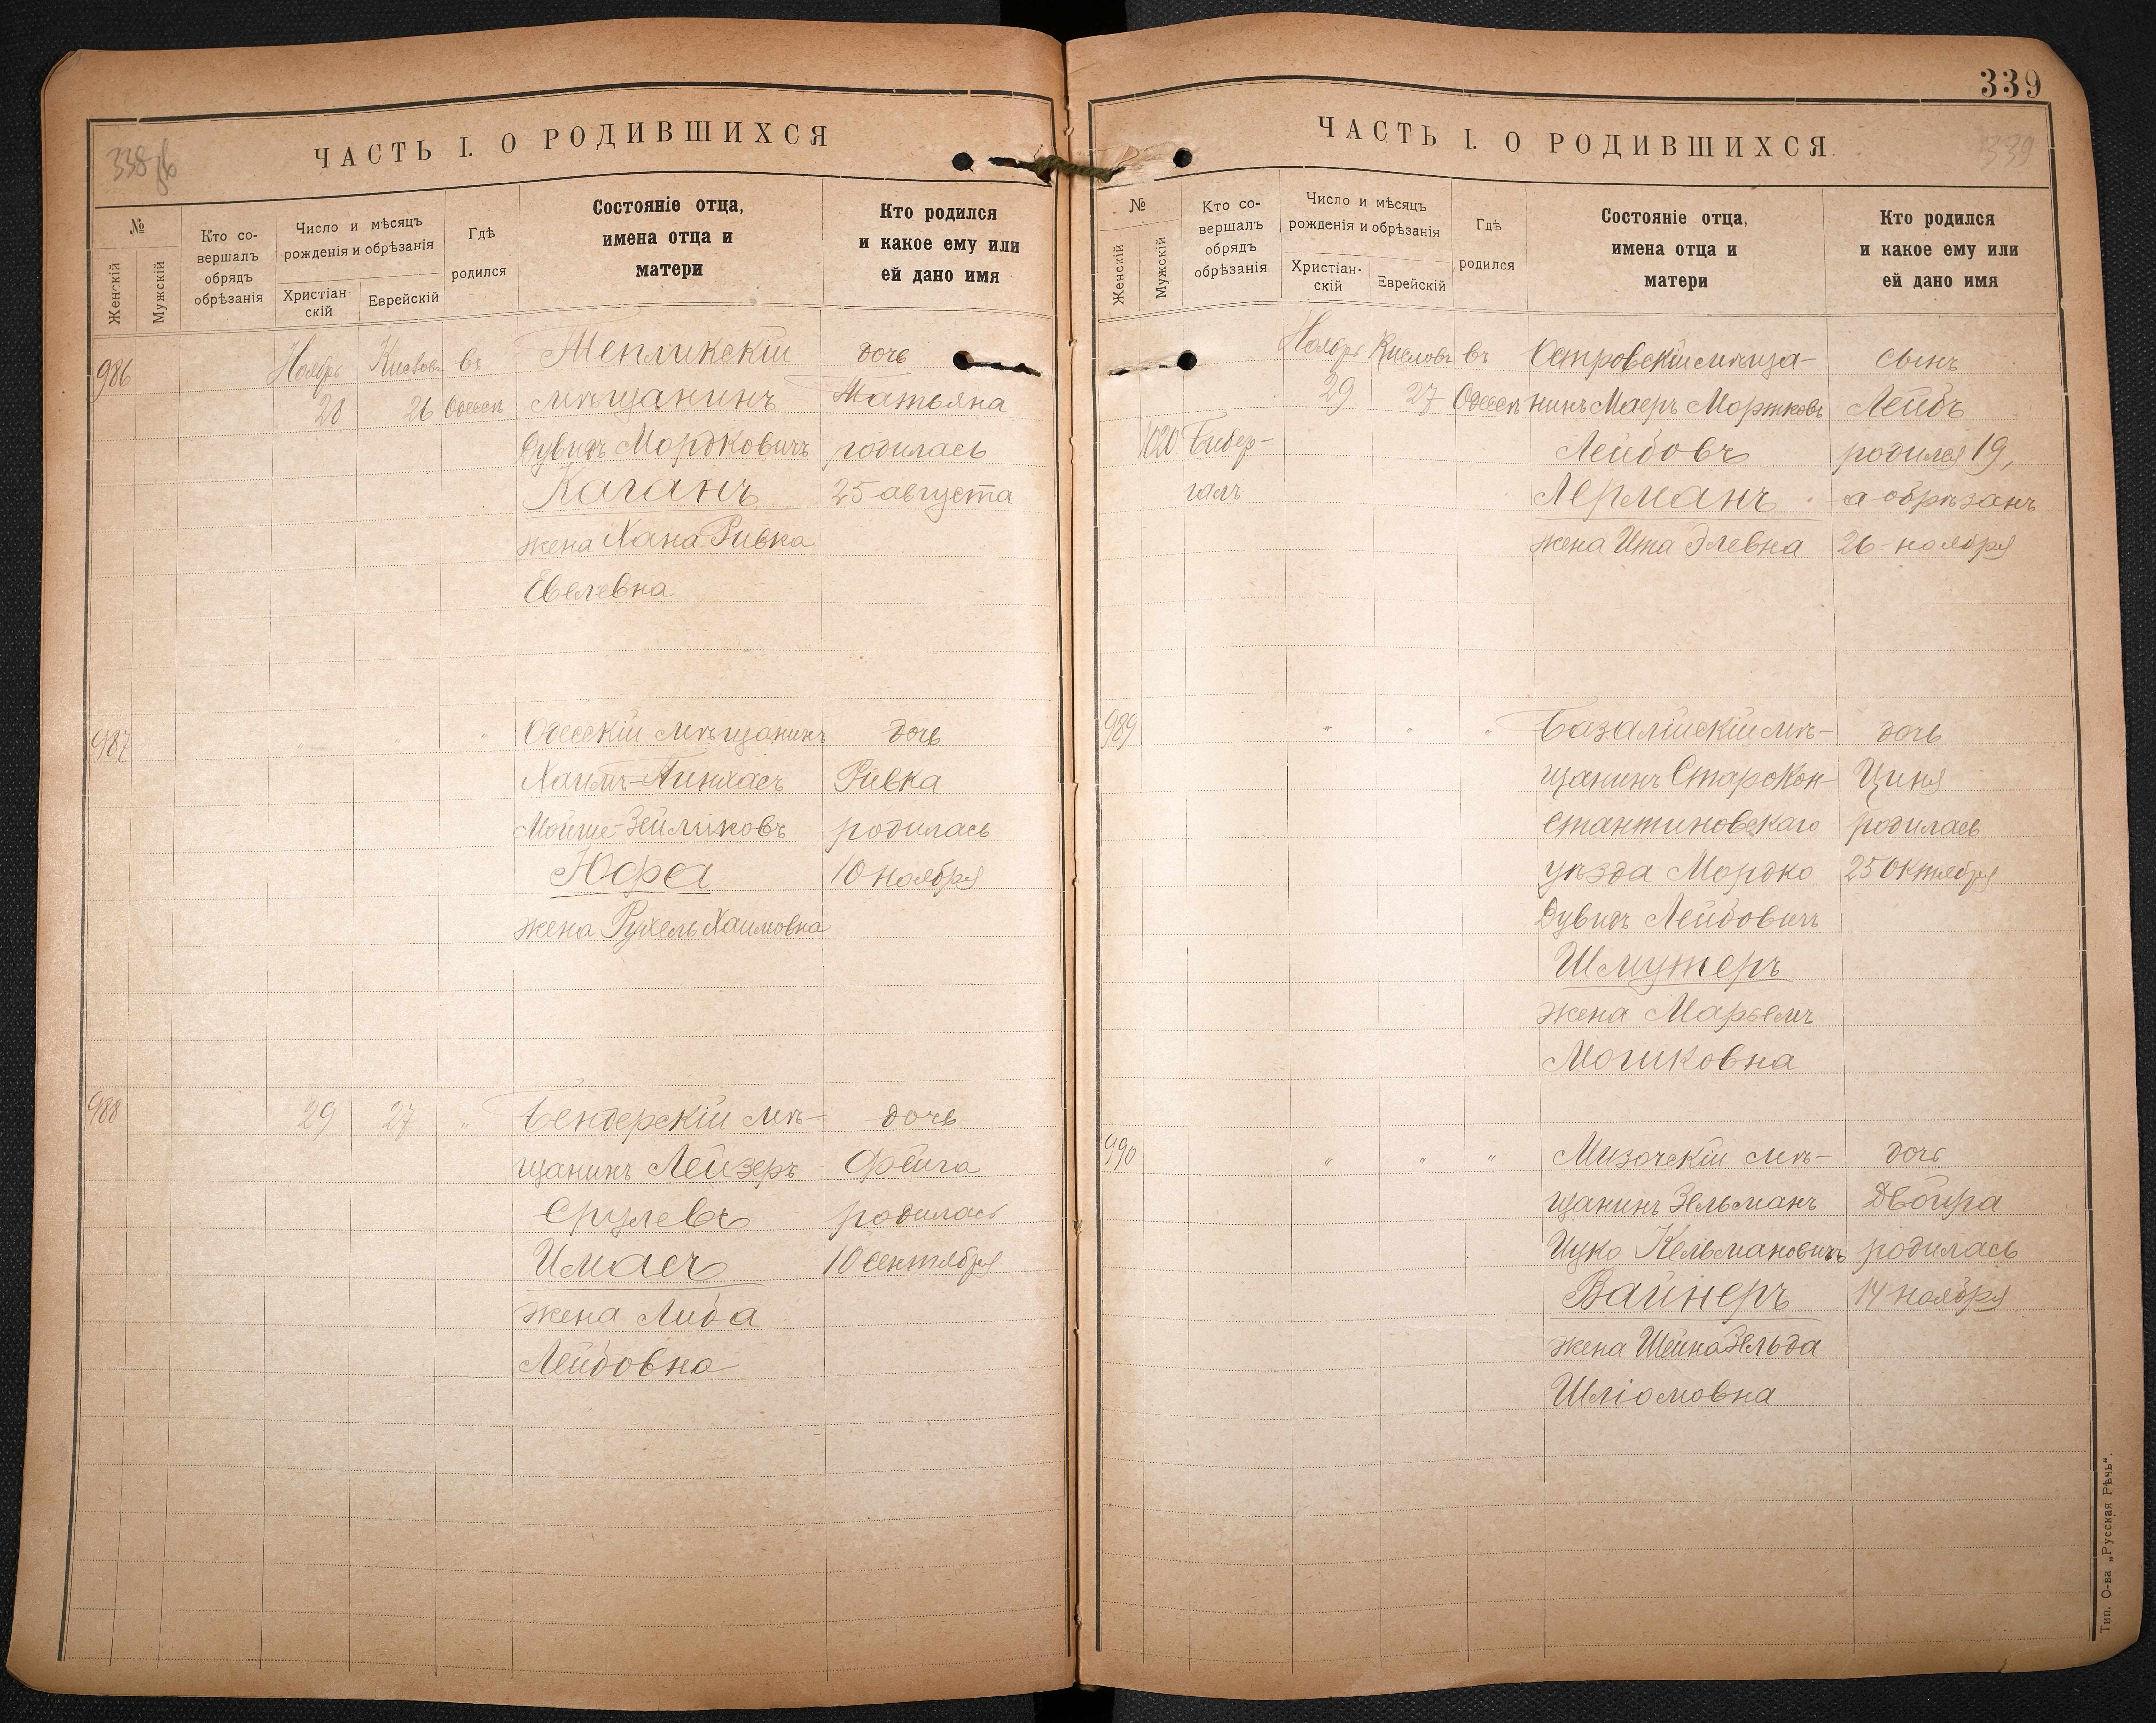 338 об
ЧАСТЬ I. О РОДИВШИХСЯ
№
Женскій
Мужскій
Кто со-
вершалъ
обрядъ
обрѣзанія
Число и мѣсяцъ
рожденія и обрѣзанія
Христіан-
скій
Еврейскій
Гдѣ
родился
Состояніе отца,
имена отца и
матери
Кто родился
и какое ему или
ей дано имя
986
Ноябрь
28
Кислевъ
26
въ
Одессѣ
Тепликскій
мѣщанинъ
Дувидъ Мордковичъ
Каганъ
жена Хана Ривка
Евелевна
дочь
Татьяна
родилась
25 августа
987
" " "
Одесскій мѣщанинъ
Хаимъ-Пинхасъ
Мойше-Зейликовъ
Юфа
жена Рухель Хаимовна
дочь
Ривка
родилась
10 ноября
988
29
27
"
Бендерскій мѣ-
щанинъ Лейзеръ
Срулевъ
Имасъ
жена Люба
Лейбовна
дочь
Фейга
родилась
10 сентября
339
ЧАСТЬ I. О РОДИВШИХСЯ
339
№
Женскій
Мужскій
Кто со-
вершалъ
обрядъ
обрѣзанія
Число и мѣсяцъ
рожденія и обрѣзанія
Христіан-
скій
Еврейскій
Гдѣ
родился
Состояніе отца,
имена отца и
матери
Кто родился
и какое ему или
ей дано имя
1020
Бибер-
галъ
Ноябрь
29
Кислевъ
27
въ
Одессѣ
Островскій мѣща-
нинъ Маеръ Мортковъ
Лейбовъ
Лерманъ
жена Ита Элевна
сынъ
Лейбъ
родился 19,
а обрѣзанъ
26 ноября
989
" " "
Базалійскій мѣ-
щанинъ Старокон-
стантиновскаго
уѣзда Мордко
Дувидъ Лейбовичъ
Шмутеръ
жена Марьемъ
Мошковна
дочь
Циня
родилась
25 Октября
990
" " "
Мизочскій мѣ-
щанинъ Зельманъ
Ицко Кельмановичъ
Вайнеръ
жена Шейна Зельда
Шліомовна
дочь
Двойра
родилась
14 ноября
Тип. О-ва „Русская Рѣчь“.